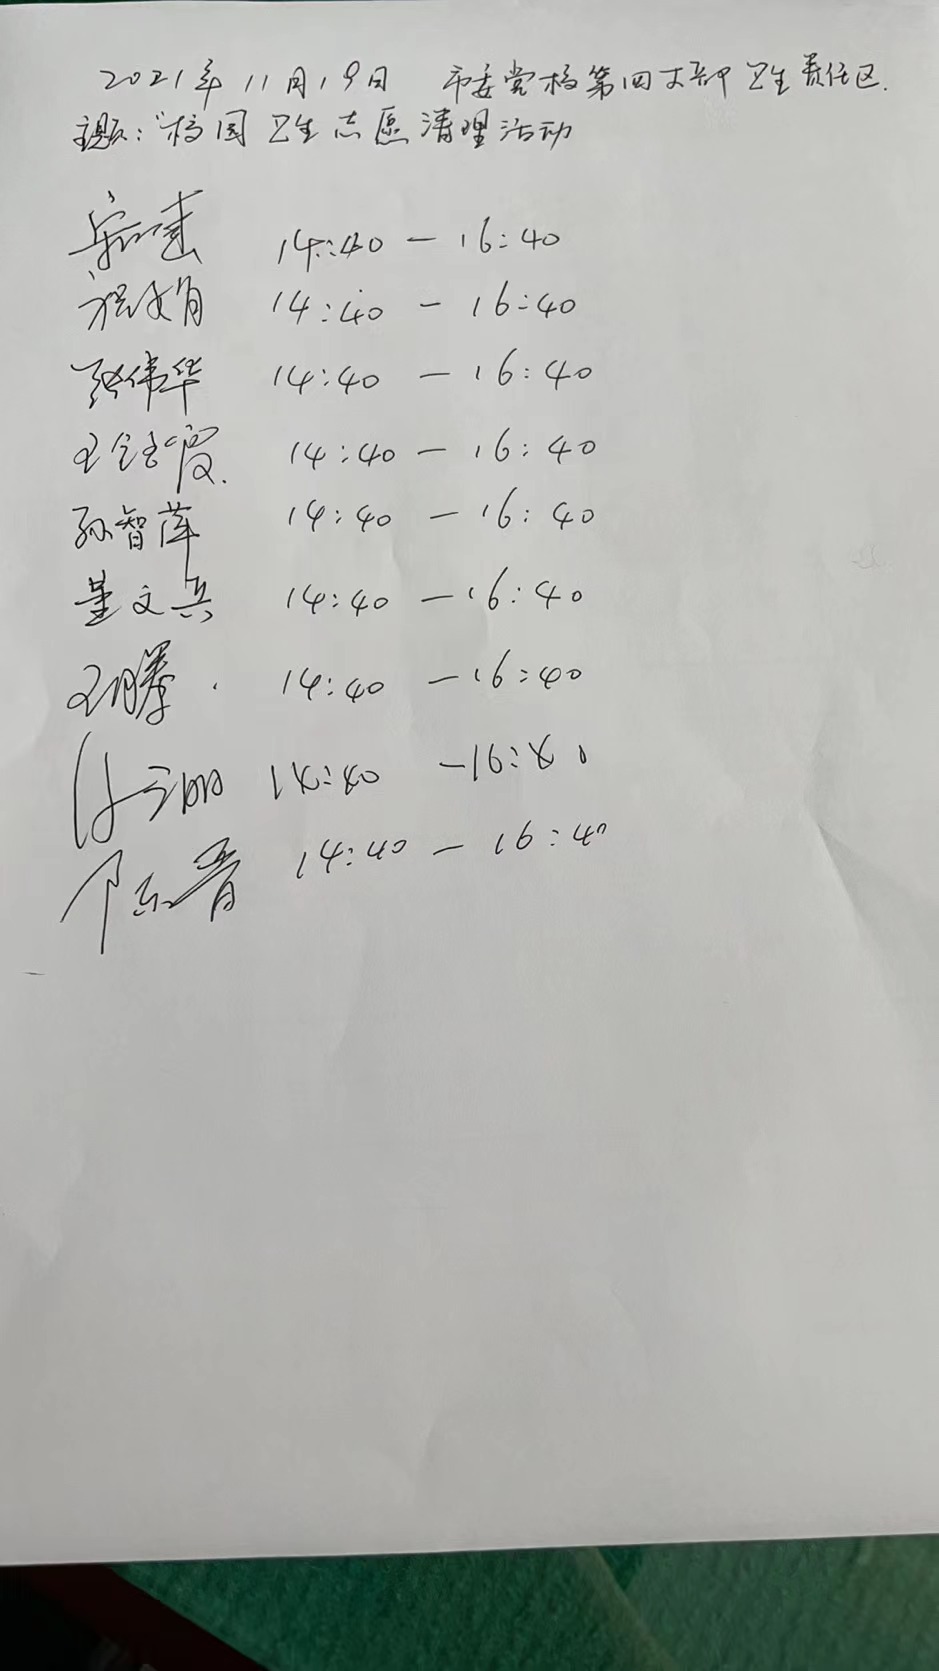 2021年11月19日 市委党校第四支部卫生责任区.
主题："校园卫生志愿清理活动
14:40 — 16:40
14:40 — 16:40
张伟华 14:40 — 16:40
王 霞. 14:40 — 16:40
孙智萍 14:40 — 16:40
董文兵 14:40 — 16:40
王 14:40 — 16:40
14:40 — 16:40
陈晋 14:40 — 16:40